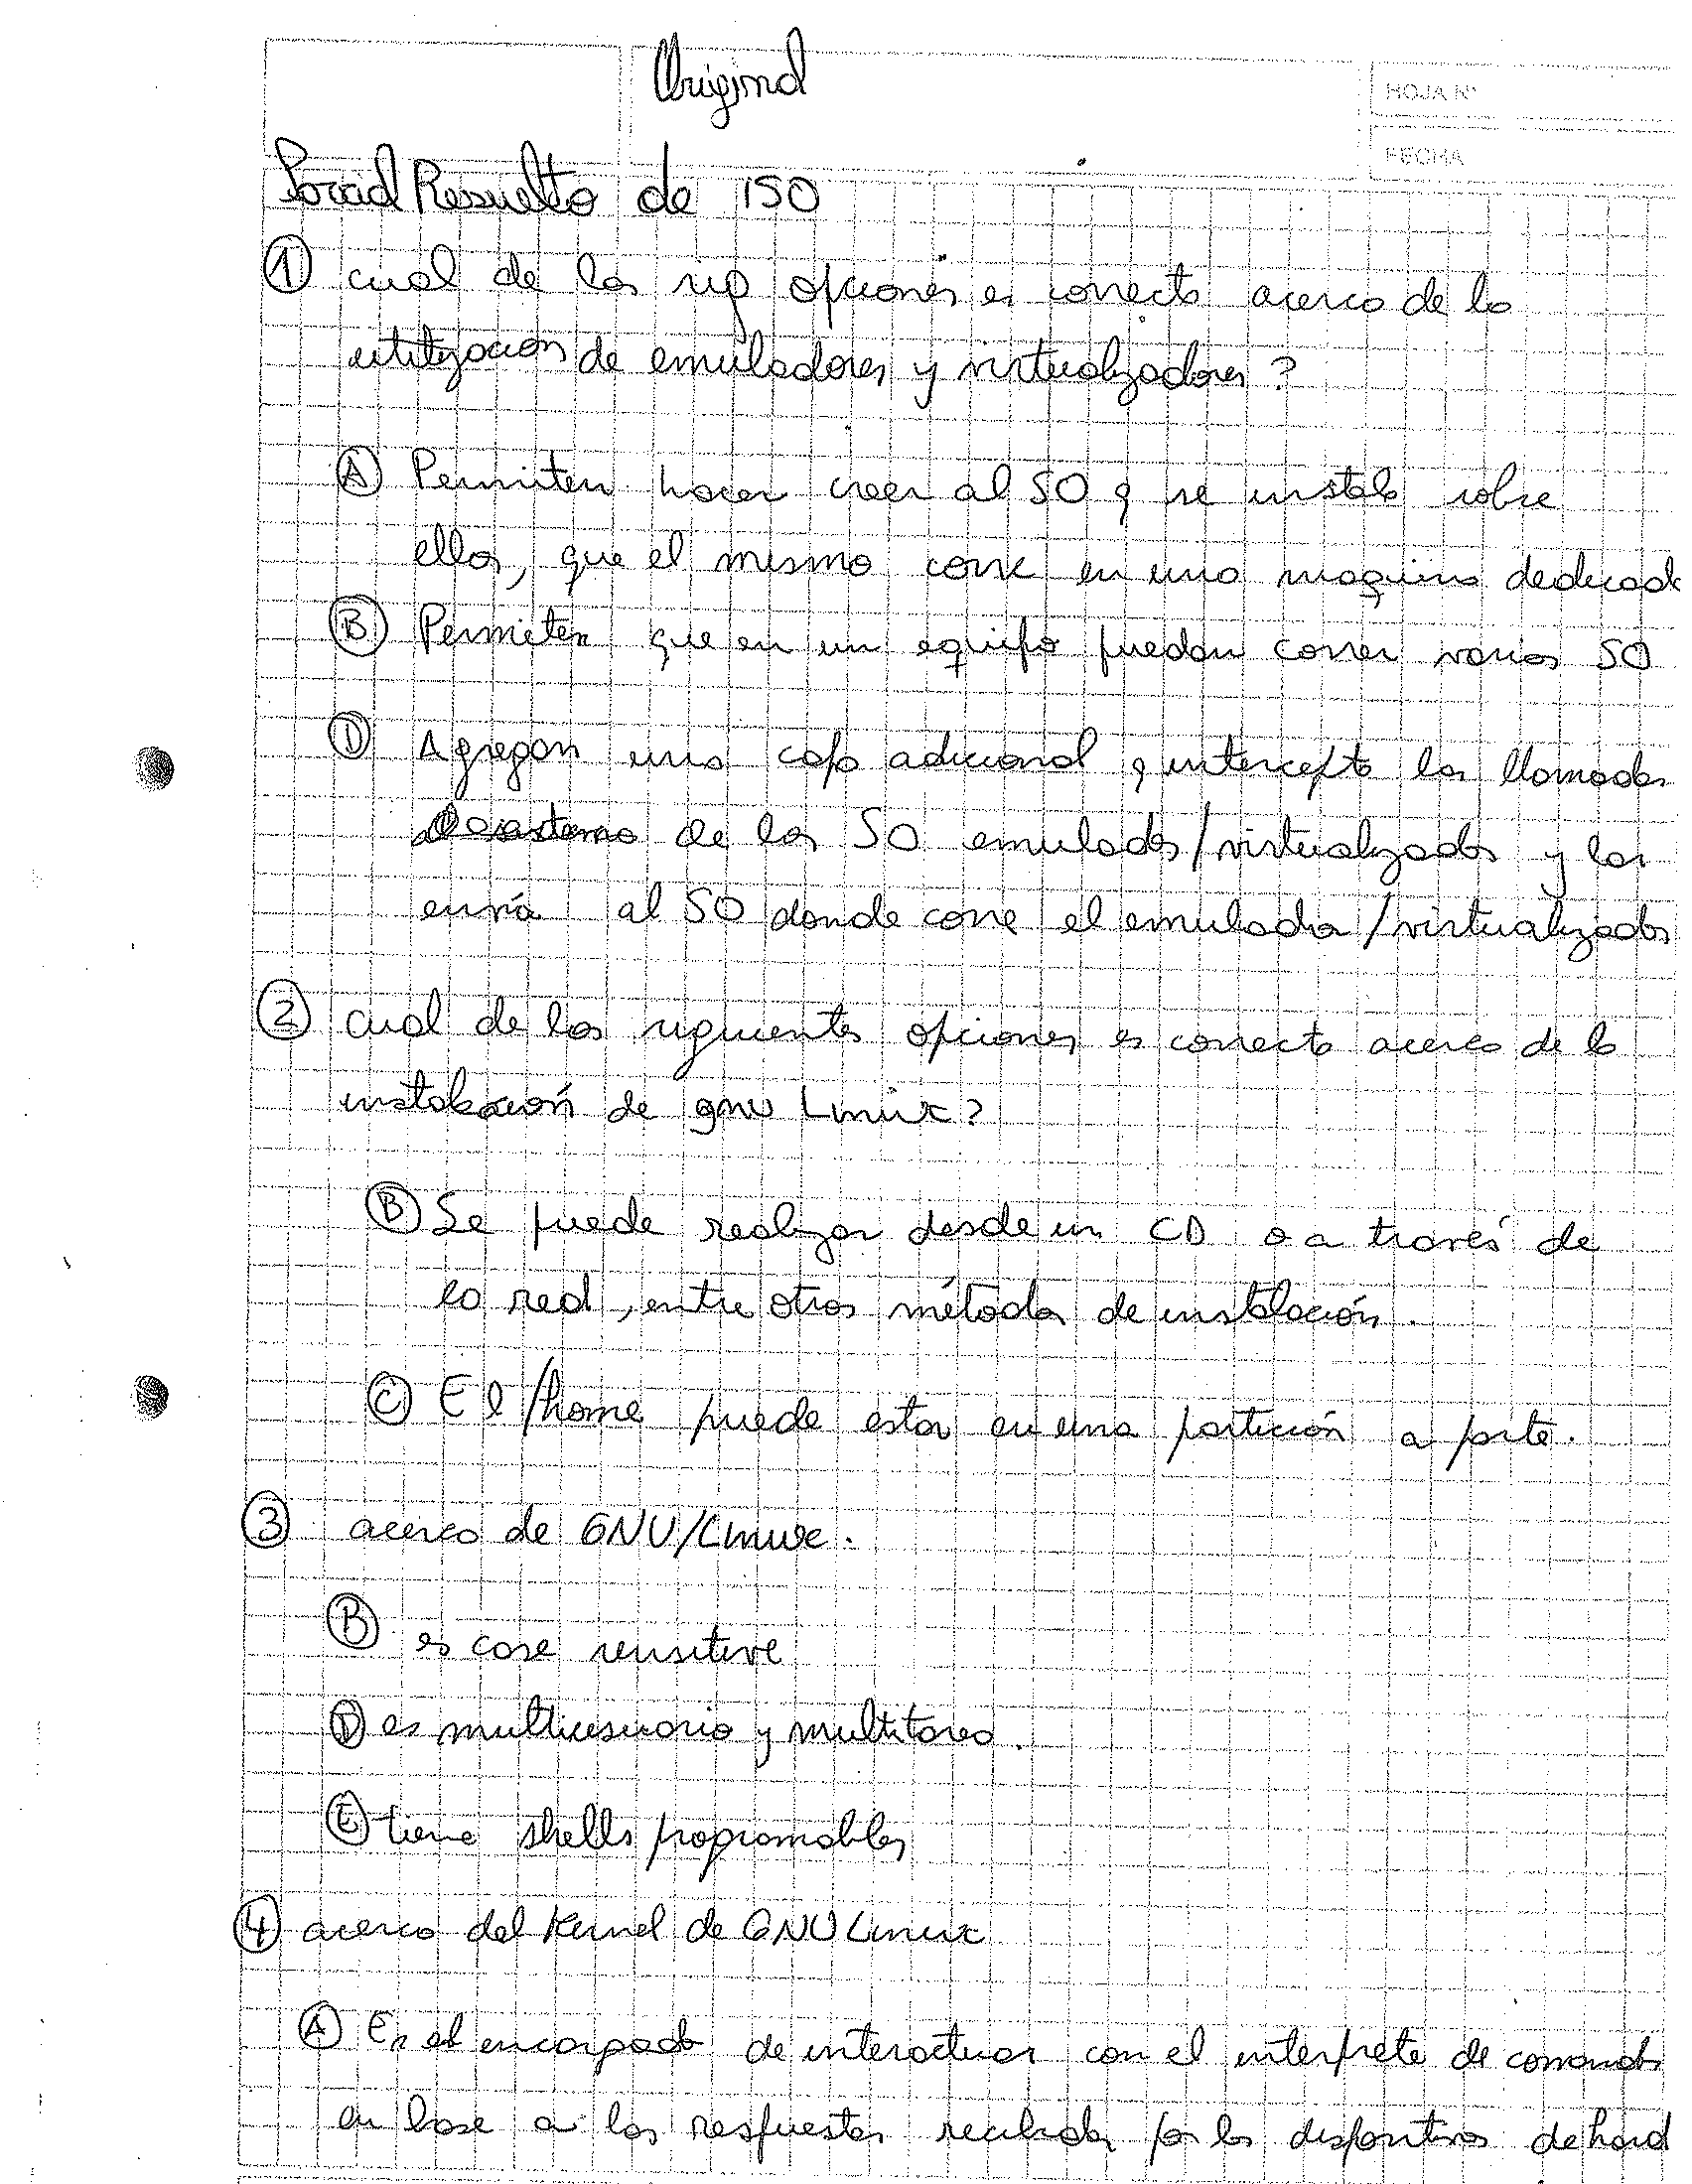 Original
HOJA Nº
FECHA
Parcial Resuelto de ISO
① cual de las sig opciones es correcta acerca de la
utilizacion de emuladores y virtualizadores?
Ⓐ Permiten hacer creer al SO q se instala sobre
ellos, que el mismo corre en una maquina dedicada
Ⓑ Permiten que en un equipo puedan correr varios SO
Ⓓ Agregan una capa adicional q intercepta las llamadas
de los SO emulados/virtualizados y las
envía al SO donde corre el emulador/virtualizador
② cual de las siguientes opciones es correcta acerca de la
instalación de gnu Linux?
Ⓑ Se puede realizar desde un CD o a través de
la red, entre otros métodos de instalación.
Ⓒ El /home puede estar en una partición a parte.
③ acerca de GNU/Linux.
Ⓑ es case sensitive
Ⓓ es multiusuario y multitarea.
Ⓔ tiene shells programables
④ acerca del Kernel de GNU Linux
Ⓐ Es el encargado de interactuar con el interprete de comandos
en base a las respuestas recibidas por los dispositivos de hard